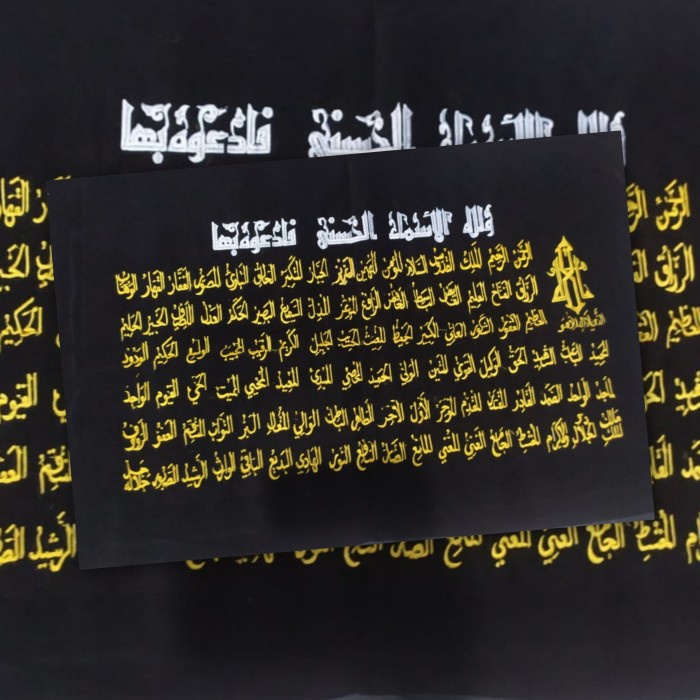 ولله الأسماء الحسنى فادعوه بها
الرحمن الرحيم الملك القدوس السلام المؤمن المهيمن العزيز الجبار المتكبر الخالق البارئ المصور الغفار القهار الوهاب
الرزاق الفتاح العليم القابض الباسط الخافض الرافع المعز المذل السميع البصير الحكم العدل اللطيف الخبير الحليم
العظيم الغفور الشكور العلي الكبير الحفيظ المقيت الحسيب الجليل الكريم الرقيب المجيب الواسع الحكيم الودود
المجيد الباعث الشهيد الحق الوكيل القوي المتين الولي الحميد المحصي المبدئ المعيد المحيي المميت الحي القيوم الواجد
الماجد الواحد الصمد القادر المقتدر المقدم المؤخر الأول الآخر الظاهر الباطن الوالي المتعال البر التواب المنتقم العفو الرؤوف
مالك الملك ذو الجلال والإكرام المقسط الجامع الغني المغني المانع الضار النافع النور الهادي البديع الباقي الوارث الرشيد الصبور جل جلاله